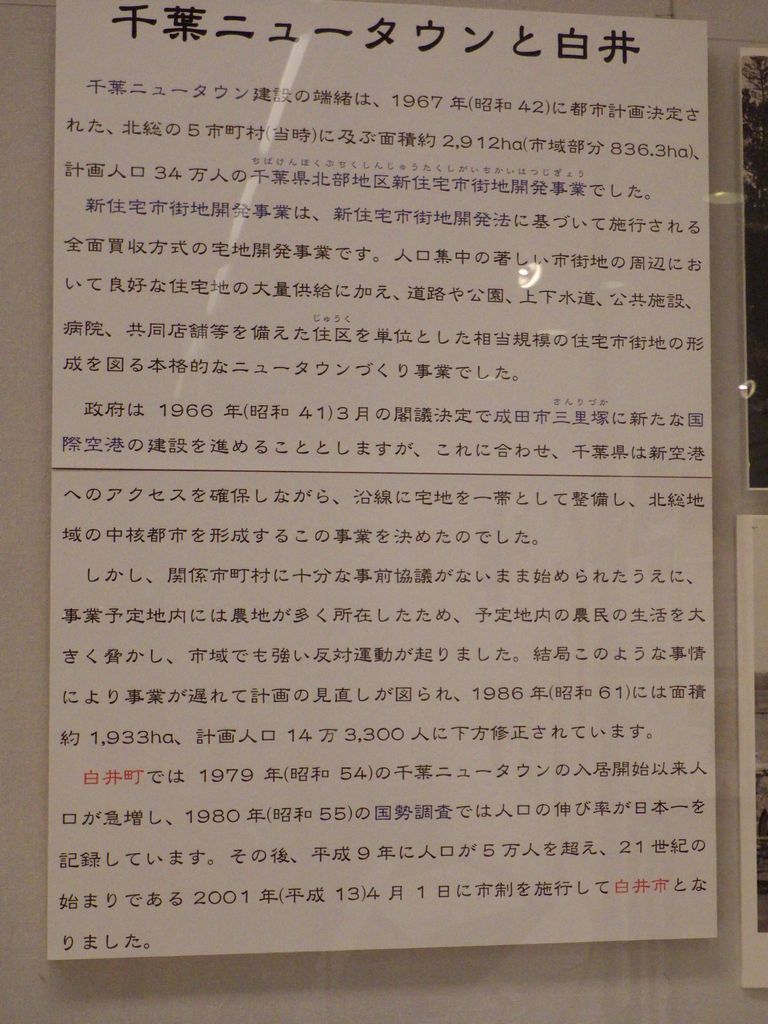 千葉ニュータウンと白井
千葉ニュータウン建設の端緒は、1967年(昭和42)に都市計画決定さ
れた、北総の5市町村(当時)に及ぶ面積約2,912ha(市域部分836.3ha)、
ちばけんほくぶちくしんじゅうたくしがいちかいはつじぎょう
計画人口34万人の千葉県北部地区新住宅市街地開発事業でした。
新住宅市街地開発事業は、新住宅市街地開発法に基づいて施行される
全面買収方式の宅地開発事業です。人口集中の著しい市街地の周辺にお
いて良好な住宅地の大量供給に加え、道路や公園、上下水道、公共施設、
じゅうく
病院、共同店舗等を備えた住区を単位とした相当規模の住宅市街地の形
成を図る本格的なニュータウンづくり事業でした。
さんりづか
政府は1966年(昭和41)3月の閣議決定で成田市三里塚に新たな国
際空港の建設を進めることとしますが、これに合わせ、千葉県は新空港
へのアクセスを確保しながら、沿線に宅地を一帯として整備し、北総地
域の中核都市を形成するこの事業を決めたのでした。
しかし、関係市町村に十分な事前協議がないまま始められたうえに、
事業予定地内には農地が多く所在したため、予定地内の農民の生活を大
きく脅かし、市域でも強い反対運動が起りました。結局このような事情
により事業が遅れて計画の見直しが図られ、1986年(昭和61)には面積
約1,933ha、計画人口14万3,300人に下方修正されています。
白井町では1979年(昭和54)の千葉ニュータウンの入居開始以来人
口が急増し、1980年(昭和55)の国勢調査では人口の伸び率が日本一を
記録しています。その後、平成9年に人口が5万人を超え、21世紀の
始まりである2001年(平成13)4月1日に市制を施行して白井市とな
りました。